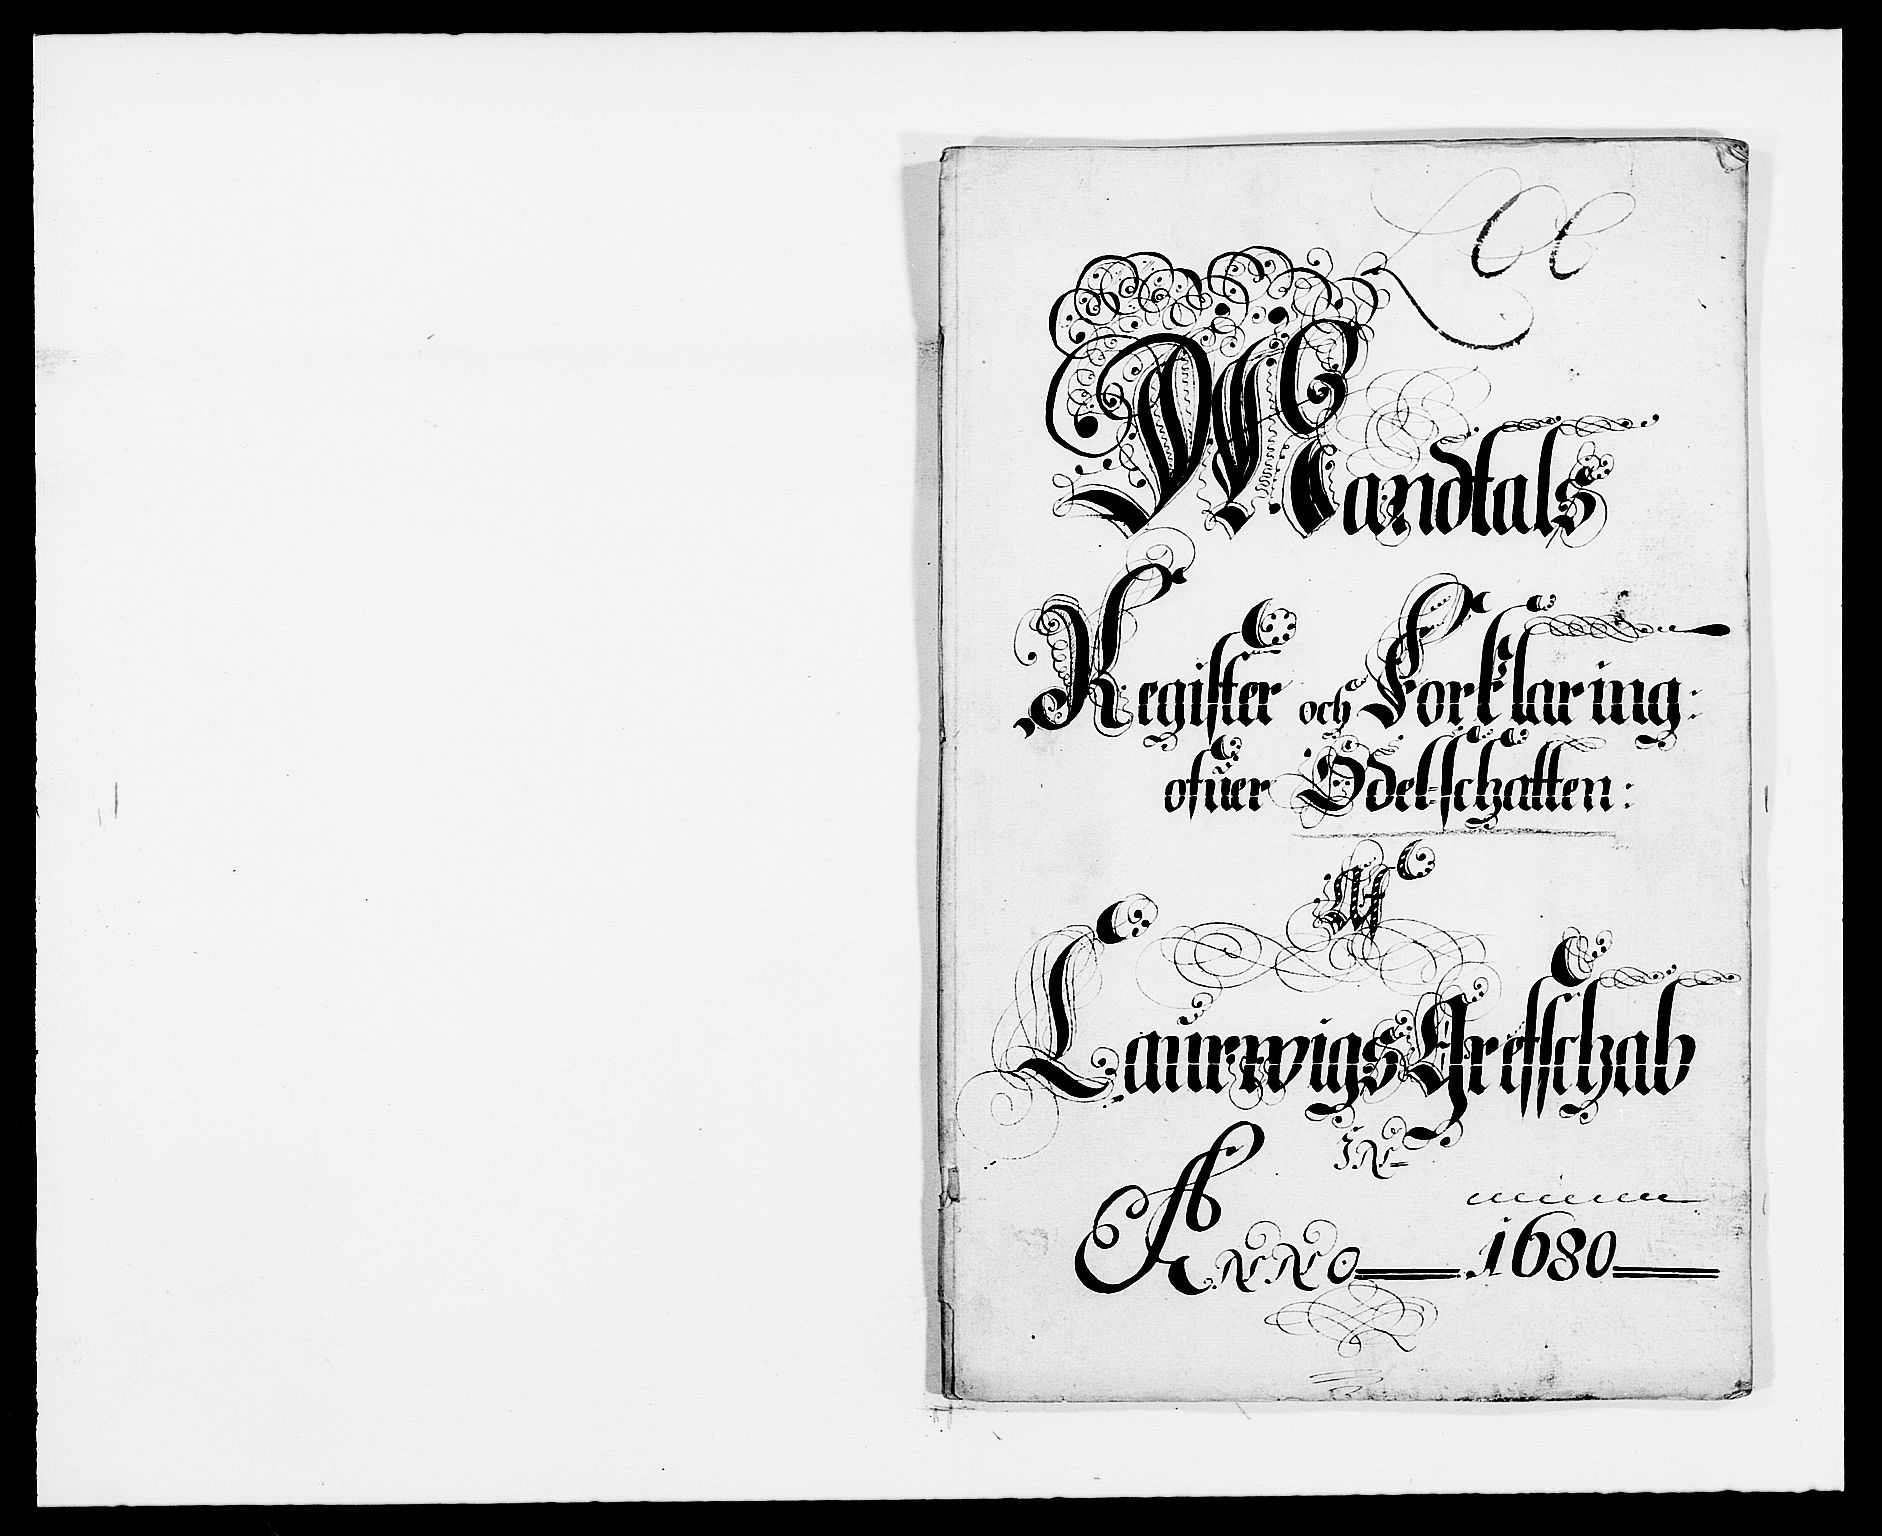 Mandtals
Register och Forklaring:
ofuer Odel-schatten:
Af
Laurwigs Grefschab
IN
Anno 1680